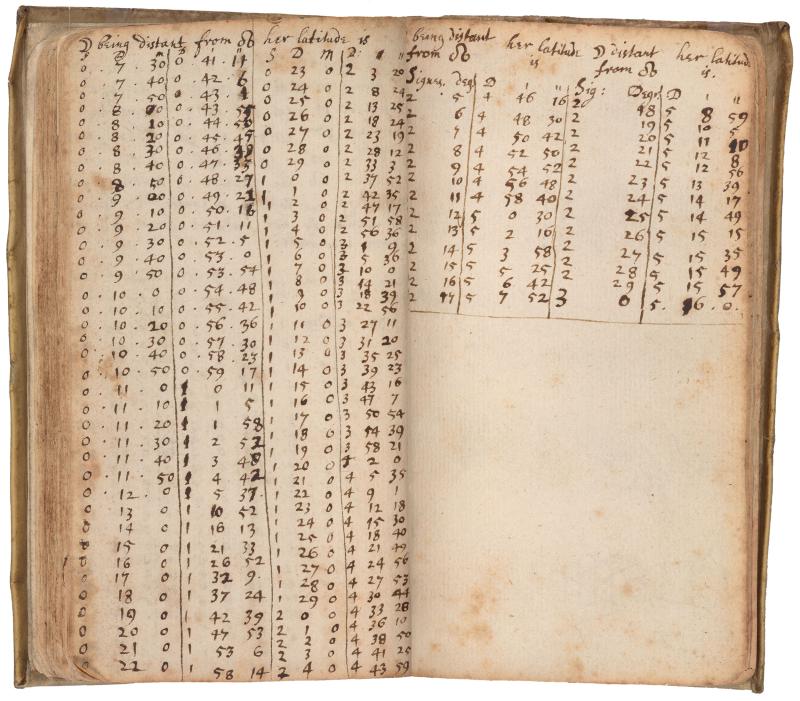 ☽ being distant from ☊ her latitude is
S D M D ' "
0 7 30 0 41 11
0 7 40 0 42 6
0 7 50 0 43 1
0 8 0 0 43 55
0 8 10 0 44 50
0 8 20 0 45 45
0 8 30 0 46 39
0 8 40 0 47 33
0 8 50 0 48 27
0 9 0 0 49 21
0 9 10 0 50 16
0 9 20 0 51 11
0 9 30 0 52 5
0 9 40 0 53 0
0 9 50 0 53 54
0 10 0 0 54 48
0 10 10 0 55 42
0 10 20 0 56 36
0 10 30 0 57 30
0 10 40 0 58 23
0 10 50 0 59 17
0 11 0 1 0 11
0 11 10 1 1 5
0 11 20 1 1 58
0 11 30 1 2 52
0 11 40 1 3 48
0 11 50 1 4 42
0 12 0 1 5 37
0 13 0 1 10 52
0 14 0 1 16 13
0 15 0 1 21 33
0 16 0 1 26 52
0 17 0 1 32 9
0 18 0 1 37 24
0 19 0 1 42 39
0 20 0 1 47 53
0 21 0 1 53 6
0 22 0 1 58 14
S D M D ' "
0 23 0 2 3 20
0 24 0 2 8 24
0 25 0 2 13 25
0 26 0 2 18 24
0 27 0 2 23 19
0 28 0 2 28 12
0 29 0 2 33 3
1 0 0 2 37 52
1 1 0 2 42 35
1 2 0 2 47 17
1 3 0 2 51 58
1 4 0 2 56 36
1 5 0 3 1 9
1 6 0 3 5 36
1 7 0 3 10 0
1 8 0 3 14 21
1 9 0 3 18 39
1 10 0 3 22 56
1 11 0 3 27 11
1 12 0 3 31 20
1 13 0 3 35 25
1 14 0 3 39 23
1 15 0 3 43 16
1 16 0 3 47 7
1 17 0 3 50 54
1 18 0 3 54 39
1 19 0 3 58 21
1 20 0 4 2 0
1 21 0 4 5 35
1 22 0 4 9 1
1 23 0 4 12 18
1 24 0 4 15 30
1 25 0 4 18 40
1 26 0 4 21 49
1 27 0 4 24
1 28 0 4 27 53
1 29 0 4 30 44
2 0 0 4 33 28
2 1 0 4 36 10
2 2 0 4 38 50
2 3 0 4 41 25
2 4 0 4 43 59
being distant from ☊ her latitude is
Signes. Degr D ' "
2 5 4 46 16
2 6 4 48 30
2 7 4 50 42
2 8 4 52 50
2 9 4 54 52
2 10 4 56 48
2 11 4 58 40
2 12 5 0 30
2 13 5 2 16
2 14 5 3 58
2 15 5 5 25
2 16 5 6 42
2 17 5 7 52
☽ distant from ☊ her latitude is.
Sig: Degr. D ' "
2 18 5 8 59
2 19 5 10 5
2 20 5 11 10
2 21 5 12 8
2 22 5 12 56
2 23 5 13 39
2 24 5 14 17
2 25 5 14 49
2 26 5 15 15
2 27 5 15 35
2 28 5 15 49
2 29 5 15 57
3 0 5 16 0